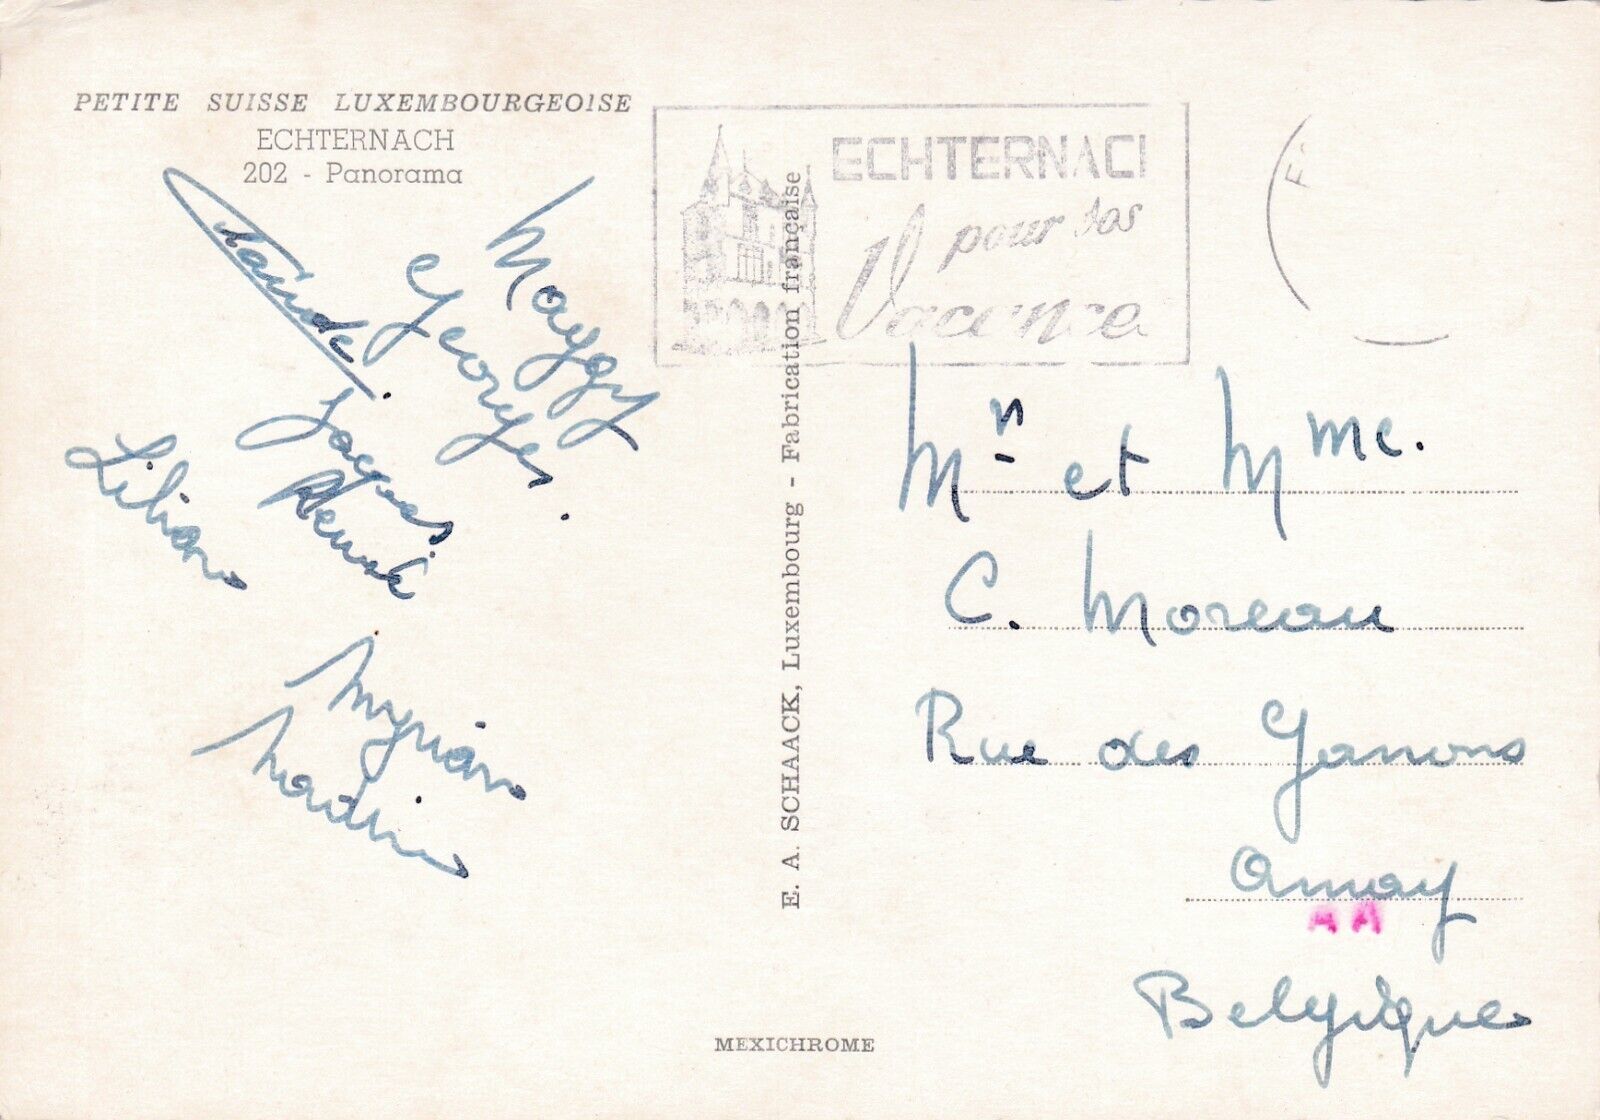 PETITE SUISSE LUXEMBOURGEOISE
ECHTERNACH
202 - Panorama
ECHTERNAC
pour vos
Vacance
Claude
Georges
Maggy
Jacques
Lilian
Myriam
E. A. SCHAACK, Luxembourg - Fabrication française
Mr et Mme.
C. Moreau
Rue des
Amay
AA
Belgique
MEXICHROME